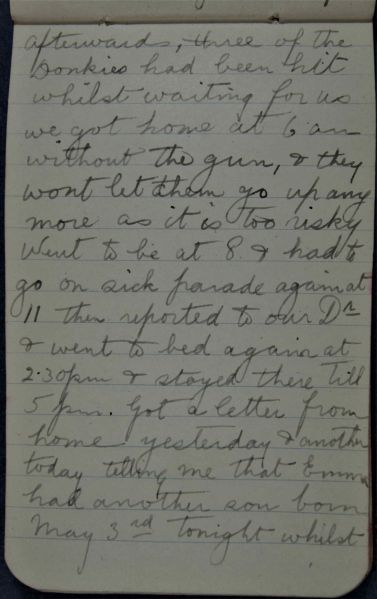 afterwards, three of the
Donkies had been hit
whilst waiting for us
we got home at 6 am
without the gun, & they
wont let them go up any
more as it is too risky
Went to be at 8. & had to
go on sick parade again at
11 then reported to our Dr
& went to bed again at
2.30pm & stayed there till
5 pm. Got a letter from
home yesterday & another
today telling me that Emma
had another son born
May 3rd Tonight whilst